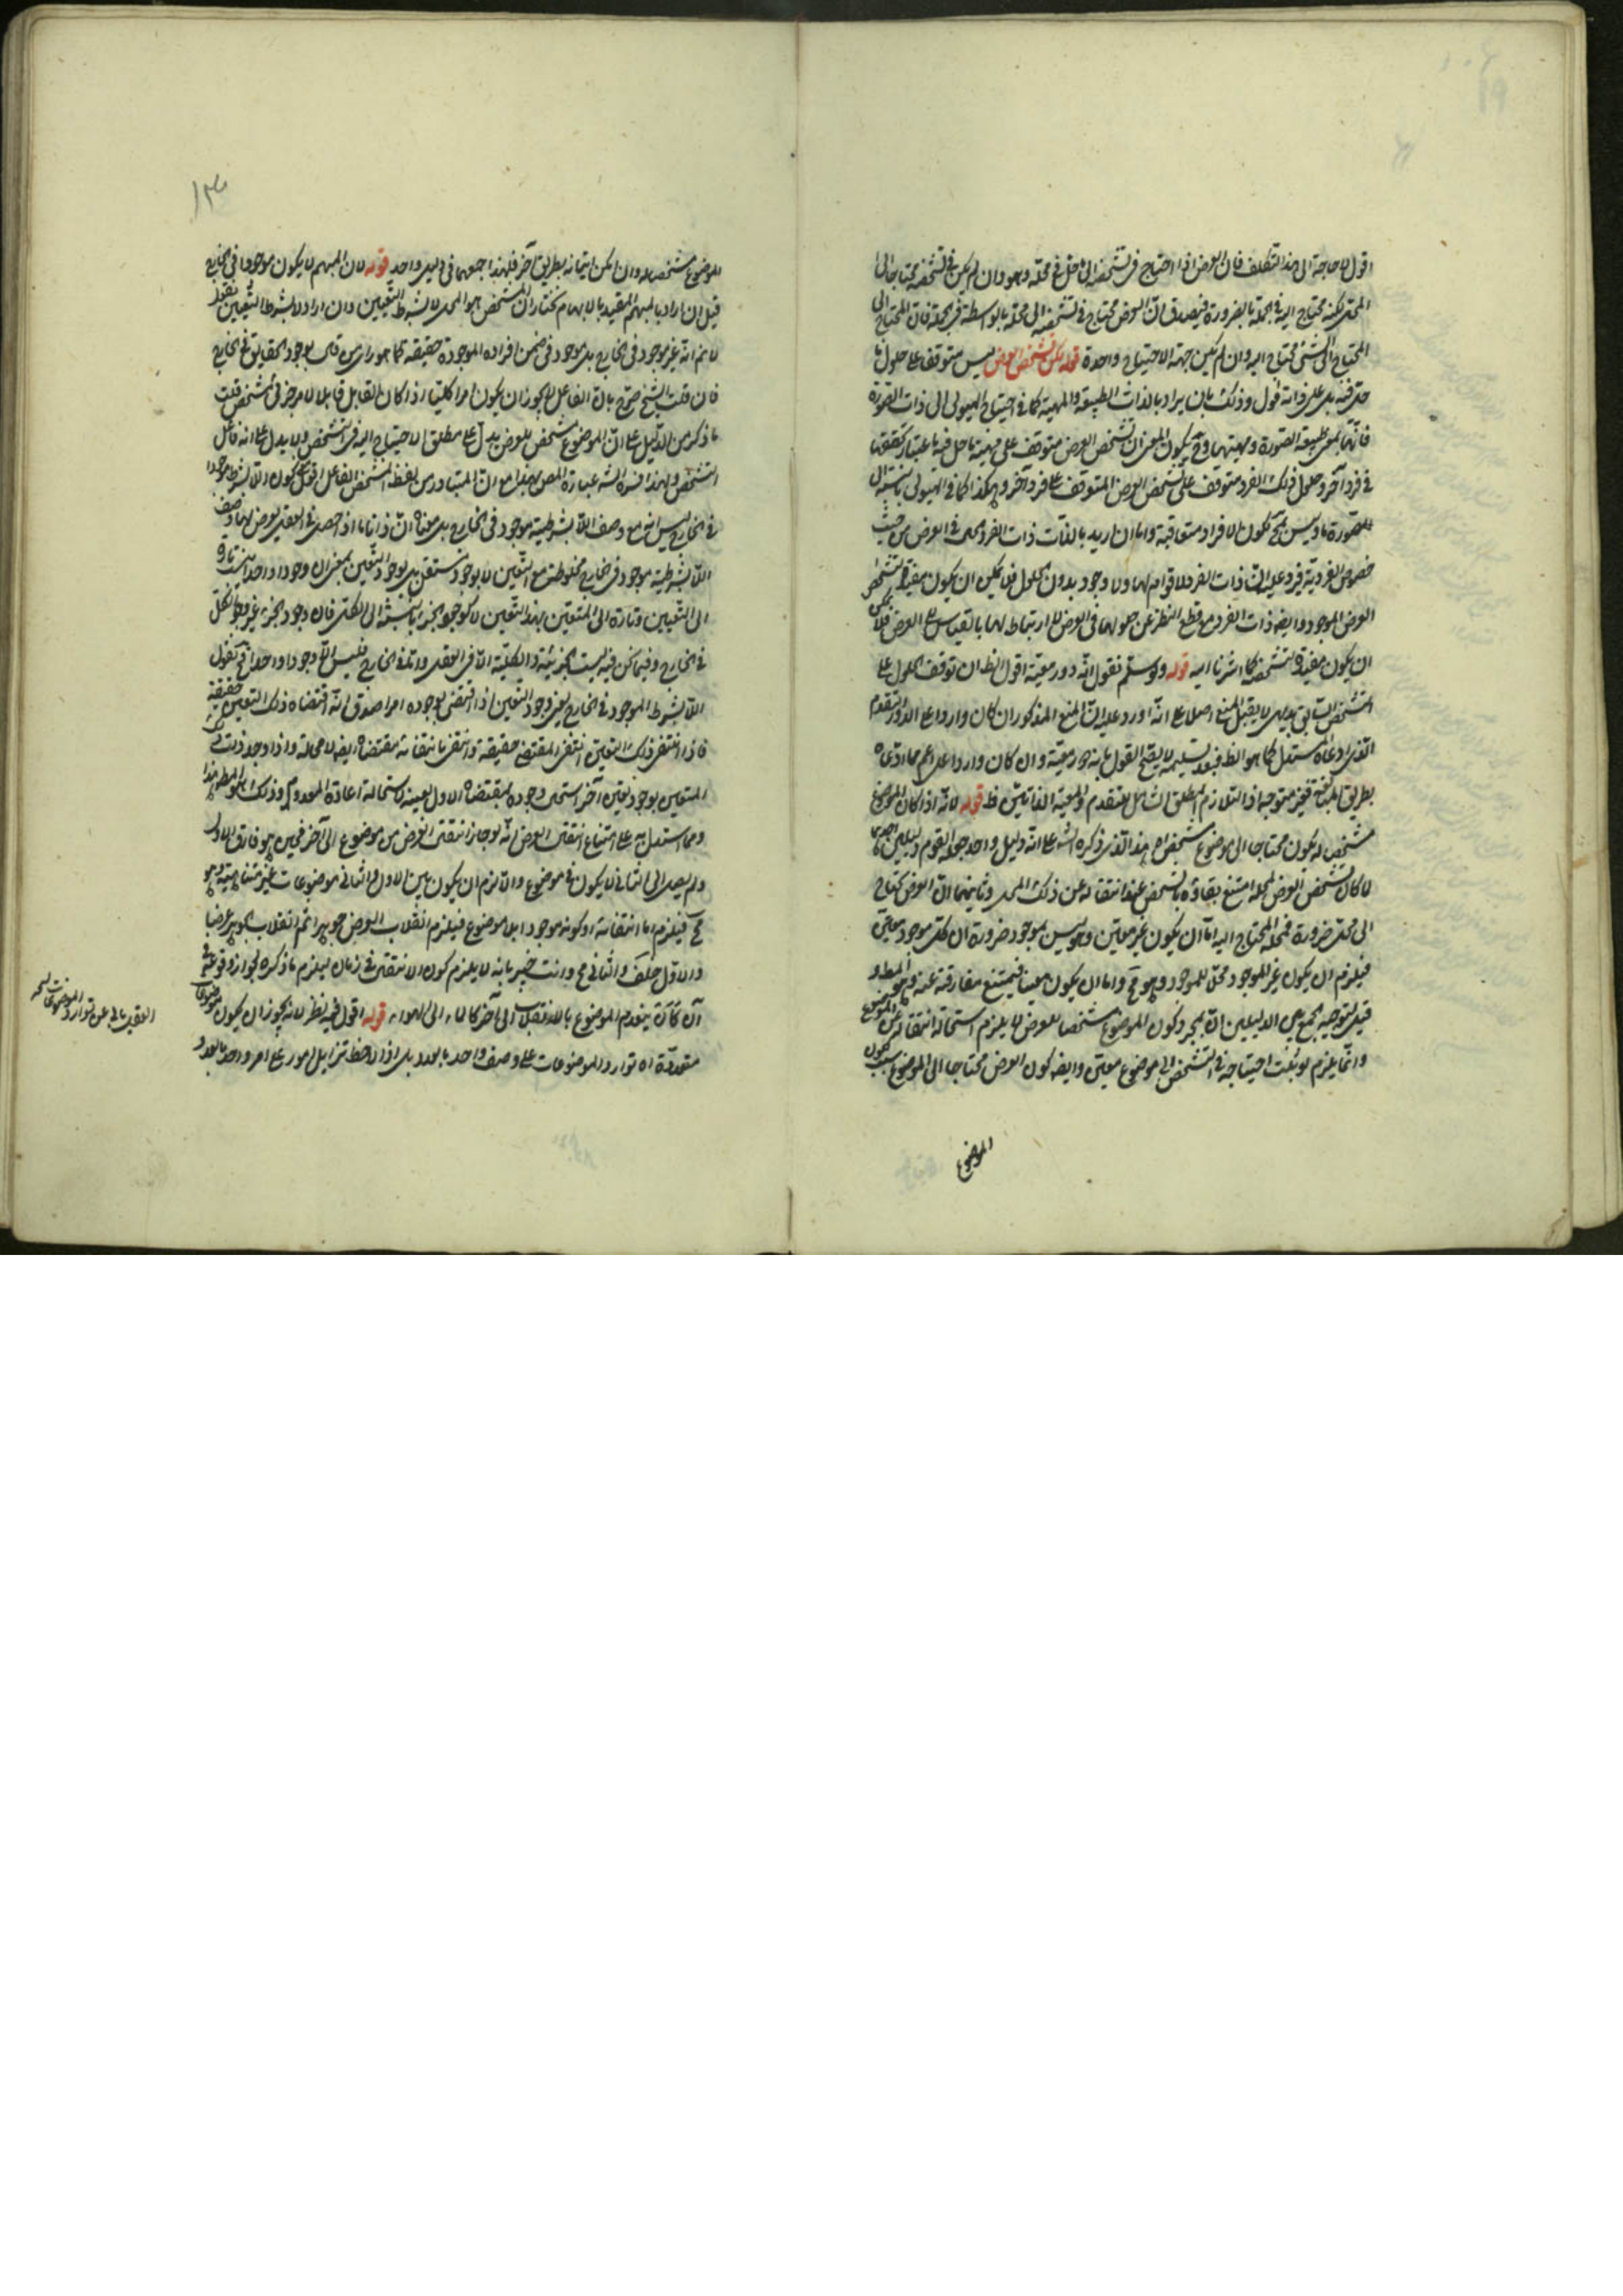 اقول لا حاجة الى هذا التكلف فان العرض اذا احتاج فى تشخصه الى ما حل فى محله وهو وان لم يكن فى تشخصه محتاجا الى
المحل لكنه محتاج اليه فى الجملة بالضرورة فيصدق ان العرض محتاج فى تشخصه الى محله بالواسطة فى الجملة فان المحتاج الى
المحتاج الى الشئ محتاج اليه وان لم يكن جهة الاحتياج واحدة قوله لكن تشخص العرض ليس متوقفا على حلول ما
حل فيه بل على ذاته اقول وذلك بان يراد بالذات الطبيعة والمهية كما فى احتياج الهيولى الى ذات الصورة
فانها بمعنى طبيعة الصورة ومهيتها وح يكون المعنى ان تشخص العرض متوقف على مهية ما حل فيه باعتبار تحققها
فى فرد آخر وحلول ذلك الفرد متوقف على تشخص العرض المتوقف على فرد آخر وهكذا كما فى الهيولى بالنسبة الى
الصورة وليس بمح لكون الافراد متعاقبة واما ان اريد بالذات ذات الفرد الحال فى العرض من حيث
خصوص الفردية فيرد عليه ان ذات الفرد لا قوام لها ولا وجود بدون الحلول فلا يمكن ان يكون مفيدا لتشخص
العرض الموجود وايضا ذات الفرد مع قطع النظر عن حلولها فى العرض لا ارتباط لها بالقياس الى العرض فلا يمكن
ان يكون مفيدة لتشخصه كما اشرنا اليه قوله ولو سلم نقول انه دور معية اقول الظ ان توقف الحلول على
التشخص السابق بديهى لا يقبل المنع اصلا على انه اورد عليه ان المنع المذكور ان كان واردا على الدور التقدم
الذى ادعاه المستدل كما هو الظ فبعد تسليمه لا يصح القول بانه دور معية وان كان واردا على اعم مما ادعاه
بطريق المناقشة فغير متوجه اذ التلازم المطلق الشامل للتقدم والمعية الذاتيتين ظ قوله لانه اذا كان الموضوع
مشخصا له يكون محتاجا الى موضوع مشخص اه هذا الذى ذكره الش على انه دليل واحد جعله القوم دليلين احدهما
لما كان تشخص العرض لمحله امتنع بقاؤه بالشخص عند انتقاله عن ذلك المحل وثانيهما ان العرض يحتاج
الى محل ضرورة فمحله المحتاج اليه اما ان يكون غير معين وهو ليس بموجود ضرورة ان كل موجود معين
فيلزم ان يكون غير الموجود محلا للموجود وهو مح واما ان يكون معينا فيمتنع مفارقته عنه وهو المط و
قيل لتوجيه الجمع بين الدليلين ان بمجرد كون الموضوع مشخصا للعرض لا يلزم استحالة انتقاله عن الموضوع
وانما يلزم لو ثبت احتياجه فى التشخص الى موضوع معين وايضا كون العرض محتاجا الى الموضوع بسبب كون
الموضوع
الموضوع مشخصا له وان امكن اتيانه بطريق آخر فلهذا جمعهما فى دليل واحد قوله لان المبهم لا يكون موجودا فى الخارج
قيل ان اراد بالمبهم المقيد بالابهام نختار ان المشخص هو المحل لا بشرط التعيين وان اراد لا بشرط التعيين فقط
لا نم انه غير موجود فى الخارج بل موجود فى ضمن افراده الموجودة حقيقة كما هو راى من قال بوجود الحقايق فى الخارج
فان قلت الشيخ صرح بان الفاعل لا يجوز ان يكون امرا كليا اذا كان القابل قابلا لامر جزئى شخص قلت
ما ذكر من الدليل على ان الموضوع مشخص للعرض يدل على مطلق الاحتياج اليه فى التشخص ولا يدل على انه فاعل
التشخص ولهذا فسره الش عبارة المص بهذا مع ان المتبادر من لفظ المشخص الفاعل اقول كون اللا بشرط موجودا
فى الخارج ليس انه مع وصف اللا بشرطية موجود فى الخارج بل معناه ان ذاتا ما اذا حصل فى العقل يعرض لها وصف
اللا بشرطية موجود فى الخارج مخلوطة مع التعين لا بوجود مستقل بل بوجود التعين بمعنى ان وجودا واحدا ينسب تارة
الى التعيين وتارة الى المتعين بهذا التعين لا كوجود الجزء بالنسبة الى الكل فان وجود الجزء غير وجود الكل
فى الخارج وفيما نحن فيه ليست الجزئية والكلية الا فى العقل واما فى الخارج فليس الا وجودا واحدا فح نقول
اللا بشرط الموجود فى الخارج بعين وجود التعين اذا اقتضى لوجوده امرا صدق انه اقتضاه ذلك التعين حقيقة
فاذا انتفى ذلك التعين انتفى المقتضى حقيقة وانتفى بانتفائه مقتضاه ايضا لا محالة واذا وجد ذلك
المتعين بوجود تعين آخر استحال وجوده لمقتضاه الاول بعينه لاستحالة اعادة المعدوم وذلك هو المط هذا
ومما استدل به على امتناع انتقال العرض انه لو جاز انتقال العرض من موضوع الى آخر فحين هو فارق الاول
ولم يصل الى الثانى لا يكون فى موضوع والا لزم ان يكون بين الاول والثانى موضوعات غير متناهية وهو
مح فيلزم اما انتفائه او كونه موجودا بلا موضوع فيلزم انقلاب العرض جوهرا ثم انقلاب الجوهر عرضا
والاول خلف والثانى مح وانت خبير بانه لا يلزم كون الانتقال فى زمان ليلزم ما ذكره لجواز وقوعه فى
آن كان ينعدم الموضوع بالانقلاب الى آخر كالماء الى الهواء قوله اقول فيه نظر لانه يجوز ان يكون موضوعات
متعددة اه توارد الموضوعات على وصف واحد بالعدد بل اذا لاحظ تزايل امور على امر واحد بالعدد